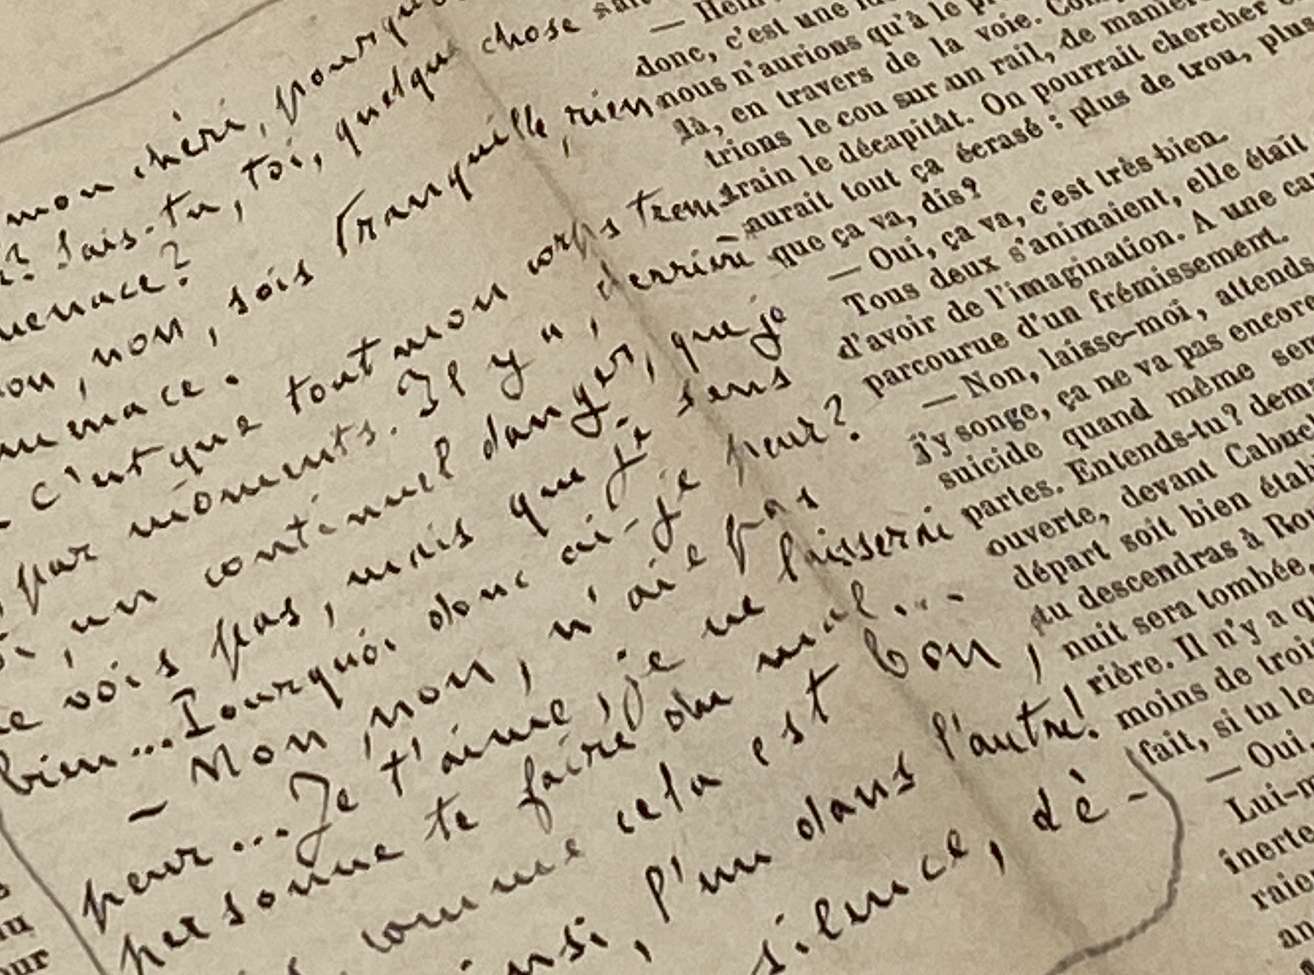 mon chéri, pourquoi
? Sais-tu, toi, quelque chose
menace?
non, sois tranquille, rien
menace.
c'est que tout mon corps trem
par moments. Il y a, derrière
, un continuel danger, que je
vois pas, mais que je sens
bien... Pourquoi donc ai-je peur?
— Non, non, n'aie pas
peur... Je t'aime, je ne laisserai
personne te faire du mal...
comme cela est bon,
l'un dans l'autre!
silence, dé-
donc, c'est une
nous n'aurions qu'à le
là, en travers de la voie.
trions le cou sur un rail, de manière
train le décapitât. On pourrait chercher
aurait tout ça écrasé : plus de trou, plus
que ça va, dis?
— Oui, ça va, c'est très bien.
Tous deux s'animaient, elle était
d'avoir de l'imagination. A une
parcourue d'un frémissement.
— Non, laisse-moi, attends
j'y songe, ça ne va pas encore
suicide quand même
partes. Entends-tu?
ouverte, devant
départ soit bien
tu descendras à
nuit sera tombée,
rière. Il n'y a
moins de trois
fait, si tu le
— Oui
Lui-m
inerte